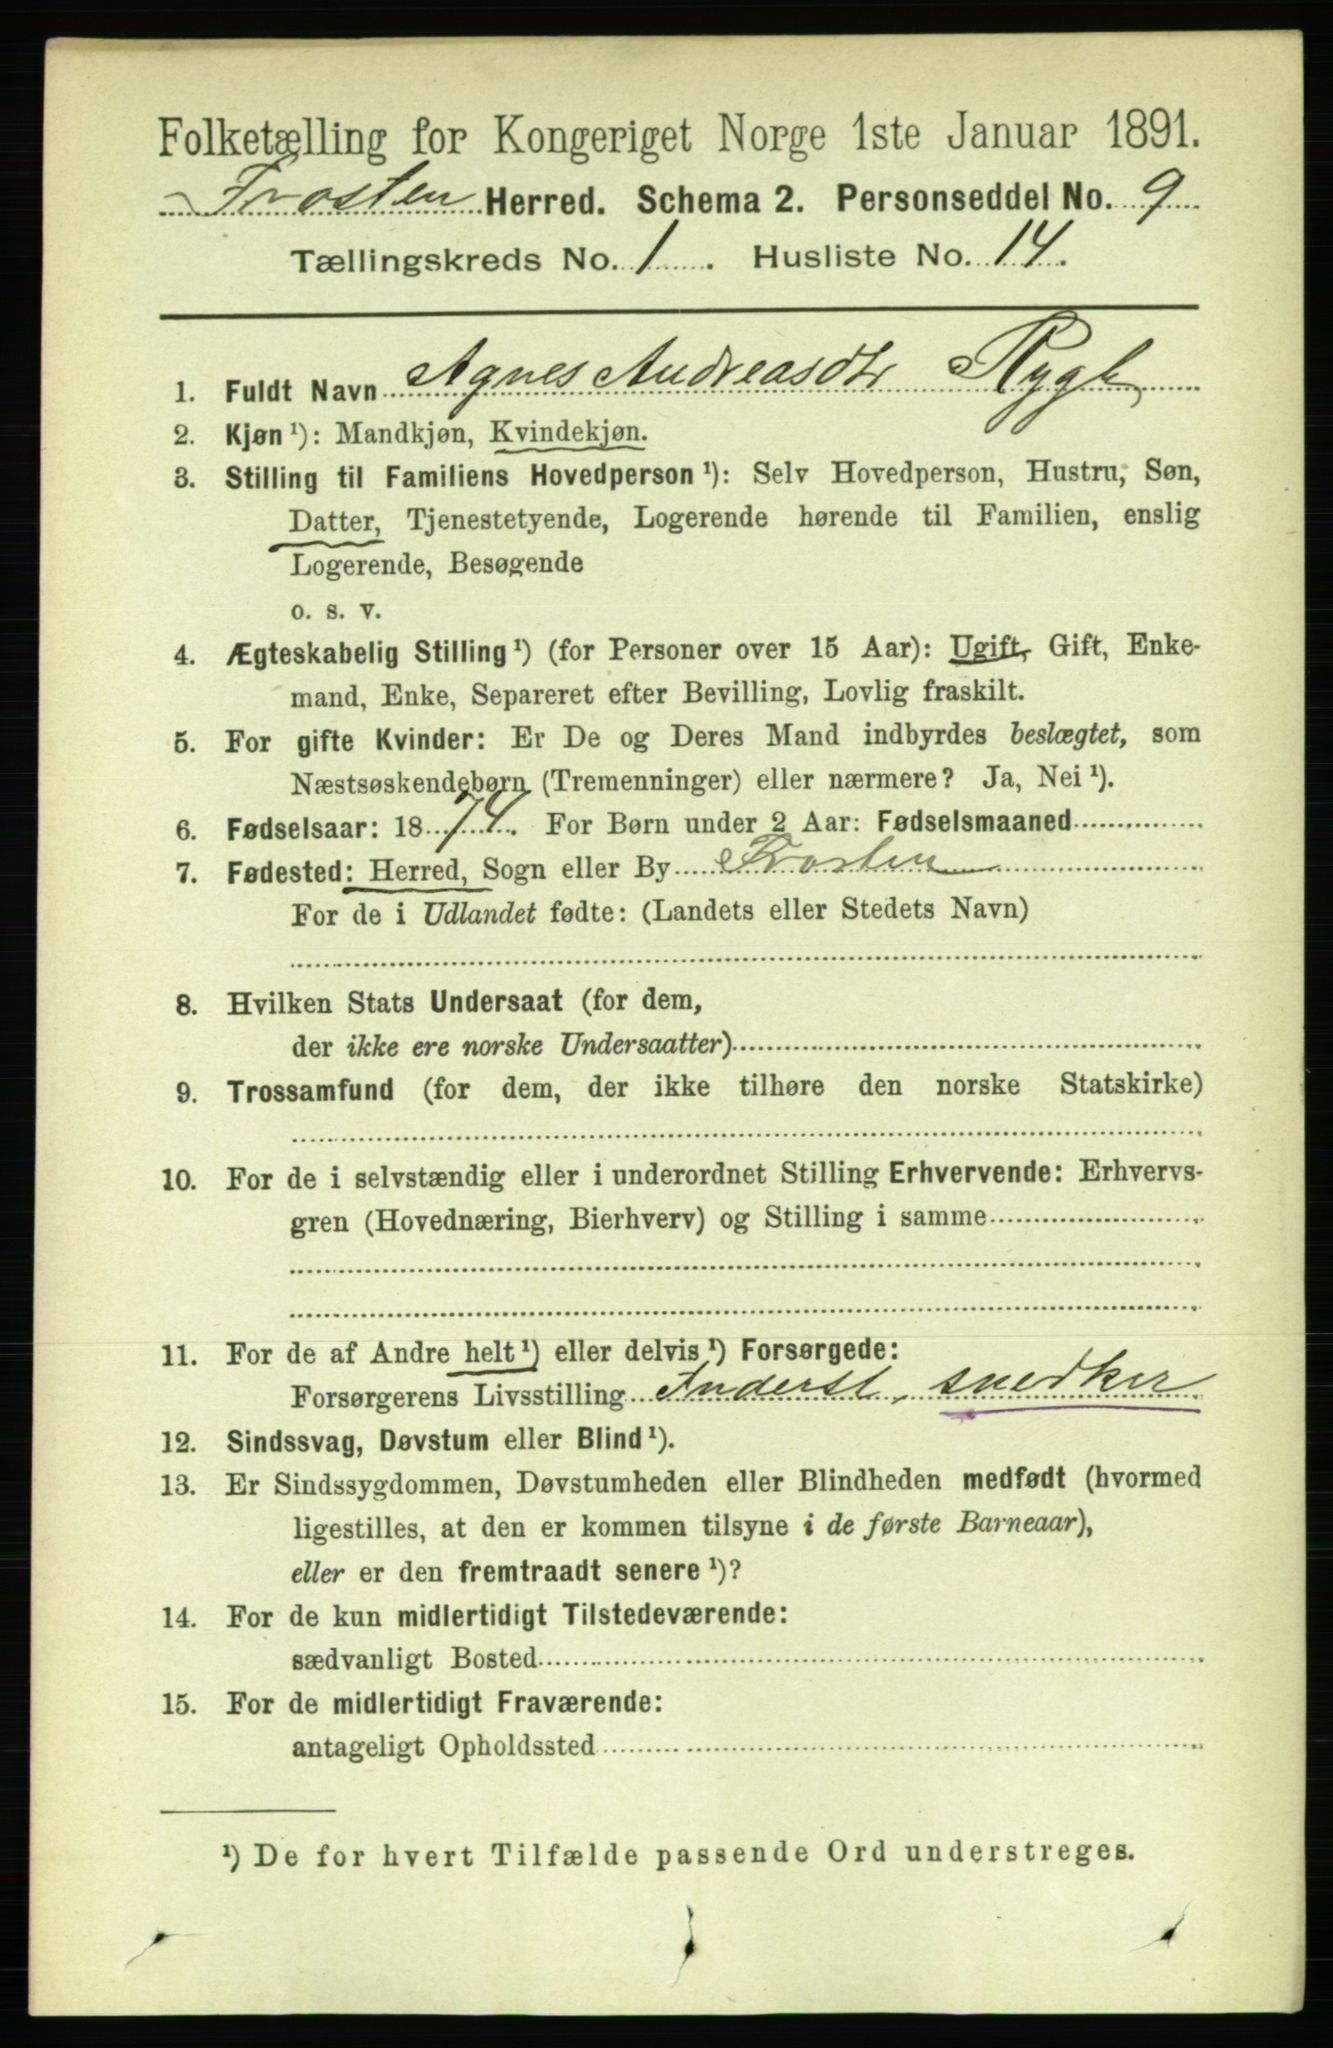 Folketælling for Kongeriget Norge 1ste Januar 1891.
Frosten Herred. Schema 2. Personseddel No. 9
Tællingskreds No. 1. Husliste No. 14.
1. Fuldt Navn Agnes Andreasdtr Rygh
2. Kjøn ¹): Mandkjøn, Kvindekjøn.
3. Stilling til Familiens Hovedperson ¹): Selv Hovedperson, Hustru, Søn,
Datter, Tjenestetyende, Logerende hørende til Familien, enslig
Logerende, Besøgende
o. s. v.
4. Ægteskabelig Stilling ¹) (for Personer over 15 Aar): Ugift, Gift, Enke-
mand, Enke, Separeret efter Bevilling, Lovlig fraskilt.
5. For gifte Kvinder: Er De og Deres Mand indbyrdes beslægtet, som
Næstsøskendebørn (Tremenninger) eller nærmere? Ja, Nei ¹).
6. Fødselsaar: 1874. For Børn under 2 Aar: Fødselsmaaned
7. Fødested: Herred, Sogn eller By Frosten
For de i Udlandet fødte: (Landets eller Stedets Navn)
8. Hvilken Stats Undersaat (for dem,
der ikke ere norske Undersaatter)
9. Trossamfund (for dem, der ikke tilhøre den norske Statskirke)
10. For de i selvstændig eller i underordnet Stilling Erhvervende: Erhvervs-
gren (Hovednæring, Bierhverv) og Stilling i samme
11. For de af Andre helt ¹) eller delvis ¹) Forsørgede:
Forsørgerens Livsstilling Inderst, snedker
12. Sindssvag, Døvstum eller Blind ¹).
13. Er Sindssygdommen, Døvstumheden eller Blindheden medfødt (hvormed
ligestilles, at den er kommen tilsyne i de første Barneaar),
eller er den fremtraadt senere ¹)?
14. For de kun midlertidigt Tilstedeværende:
sædvanligt Bosted
15. For de midlertidigt Fraværende:
antageligt Opholdssted
¹) De for hvert Tilfælde passende Ord understreges.